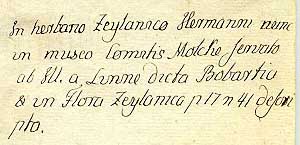 In herbario Zeylanico Hermanni nunc
in museo Comitis Moltke servato
ab Ill. a Linne dicta Bobartia
& in Flora Zeylanica p 17 n 41 descri
pta.